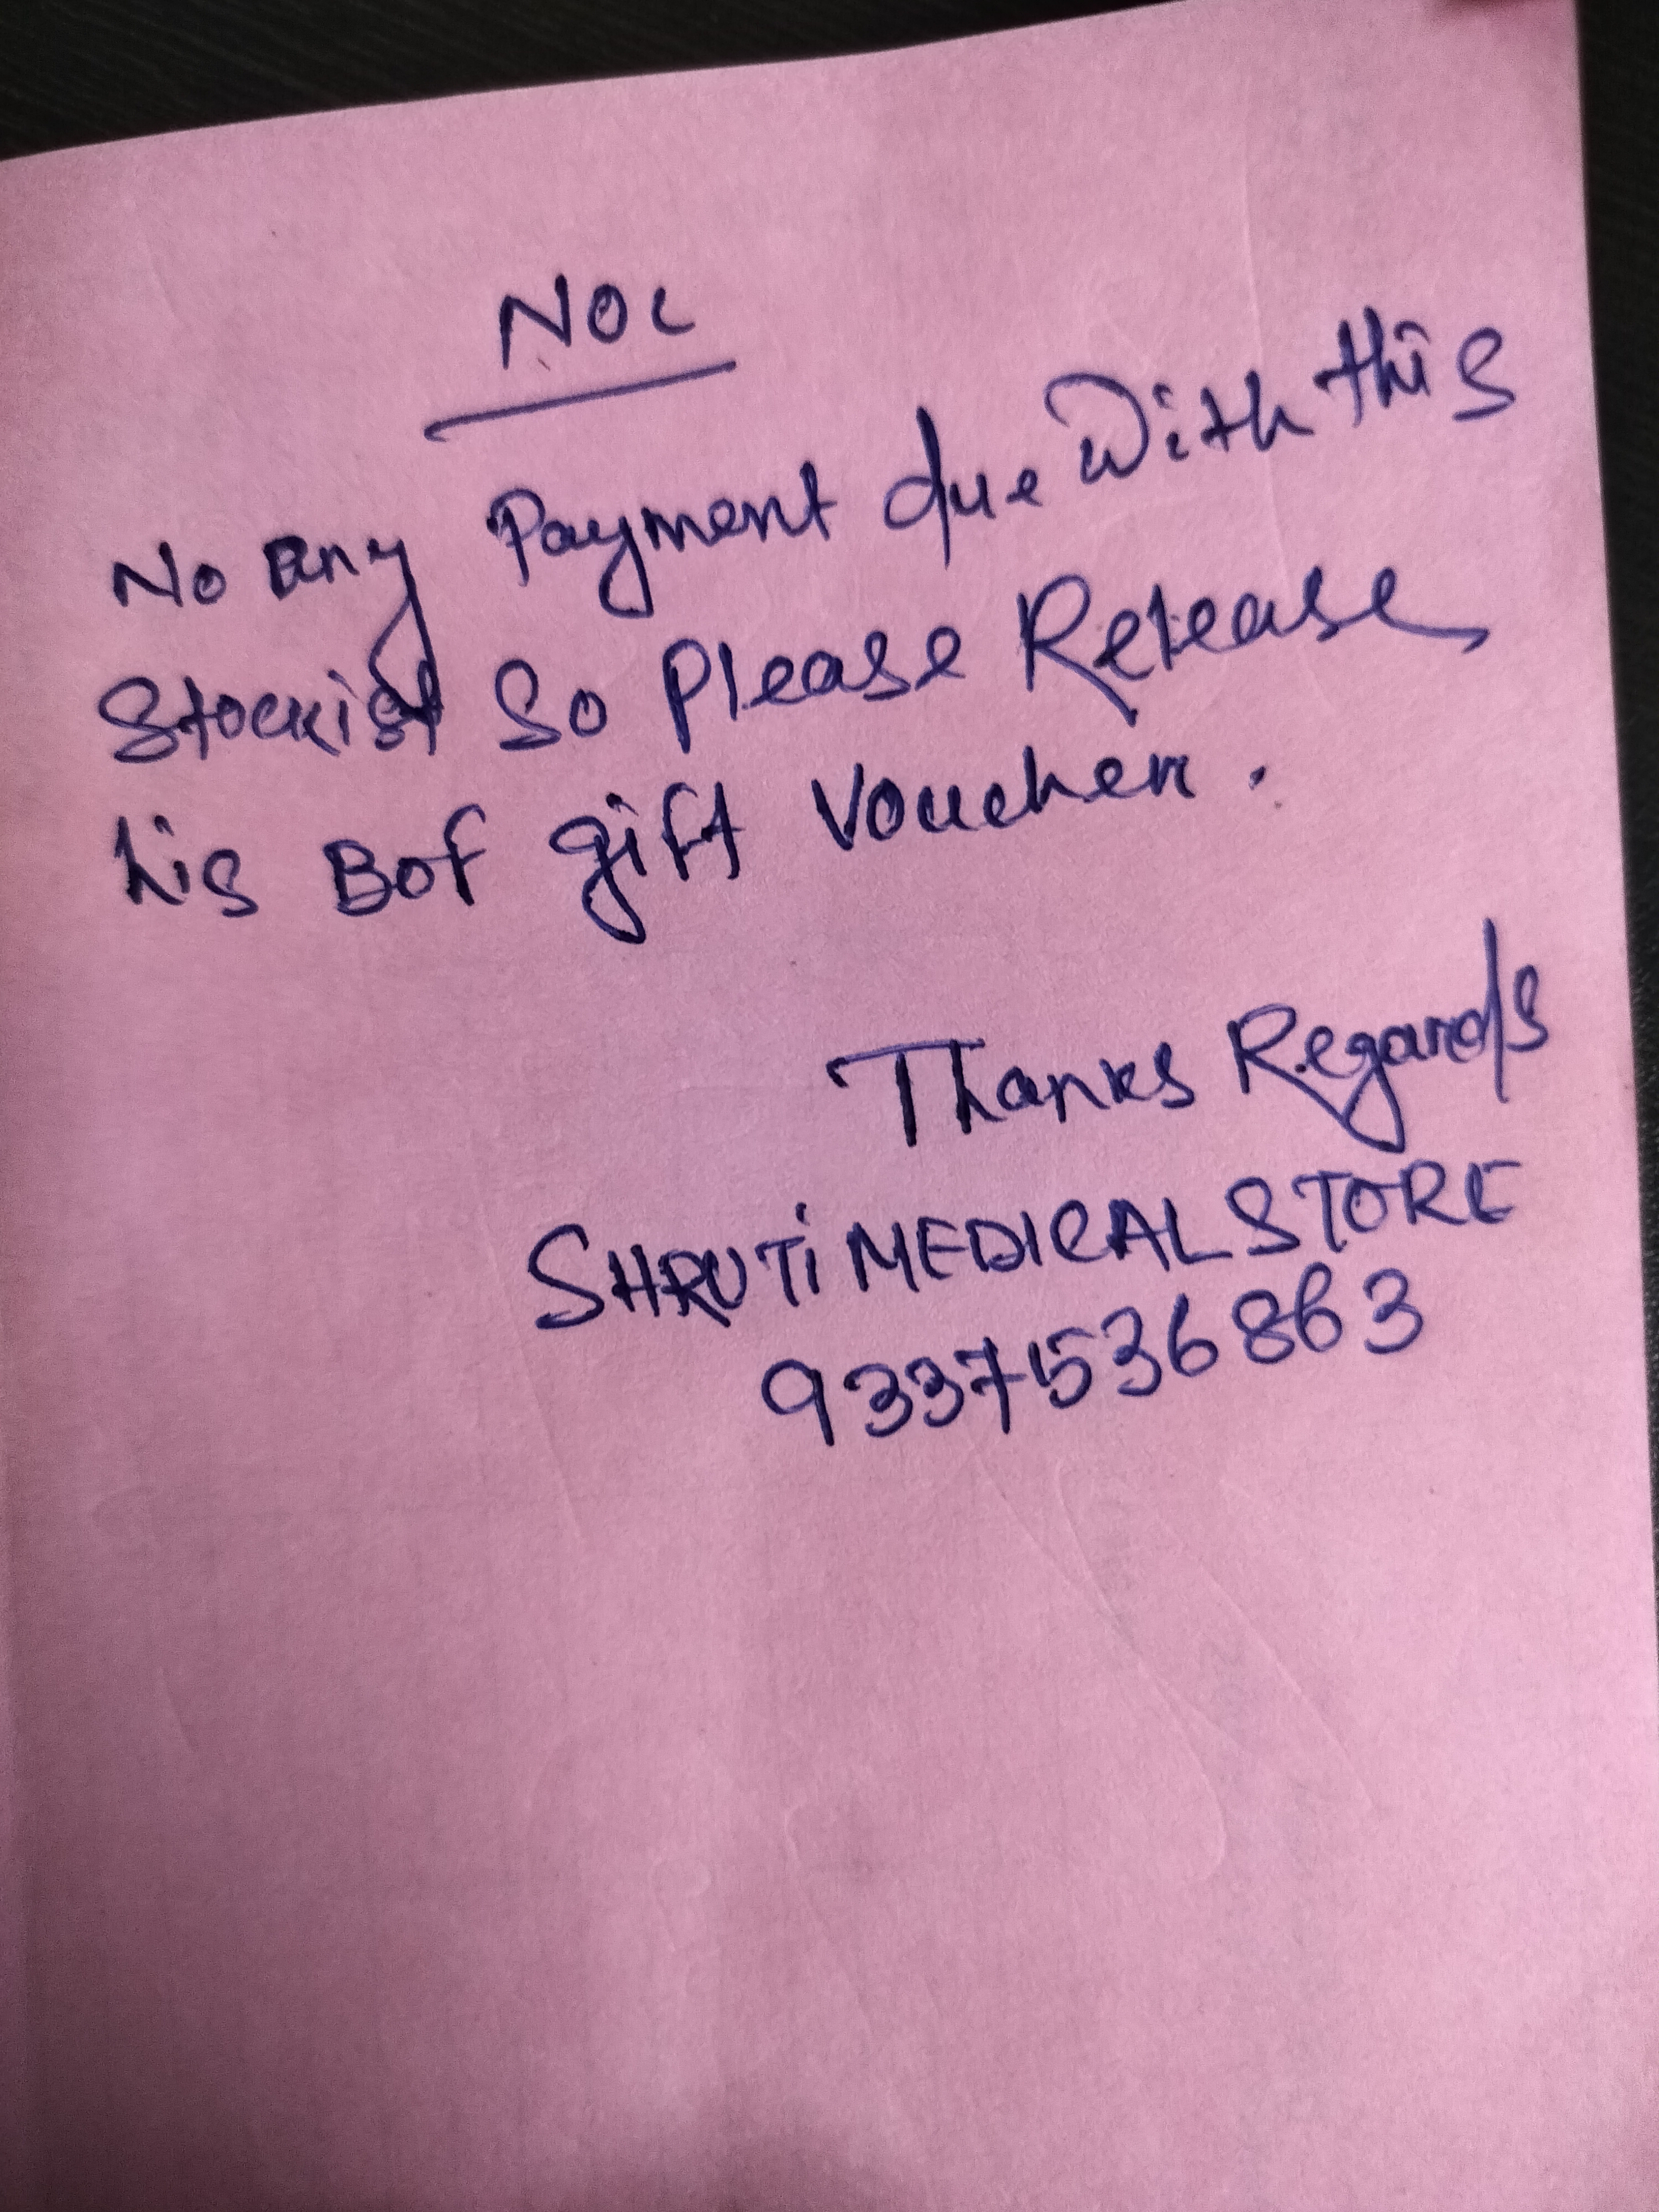 NOC
No any Payment due With this
Stockist So Please Release
his Bof gift Voucher.
Thanks Regards
SHRUTI MEDICAL STORE
9337536863